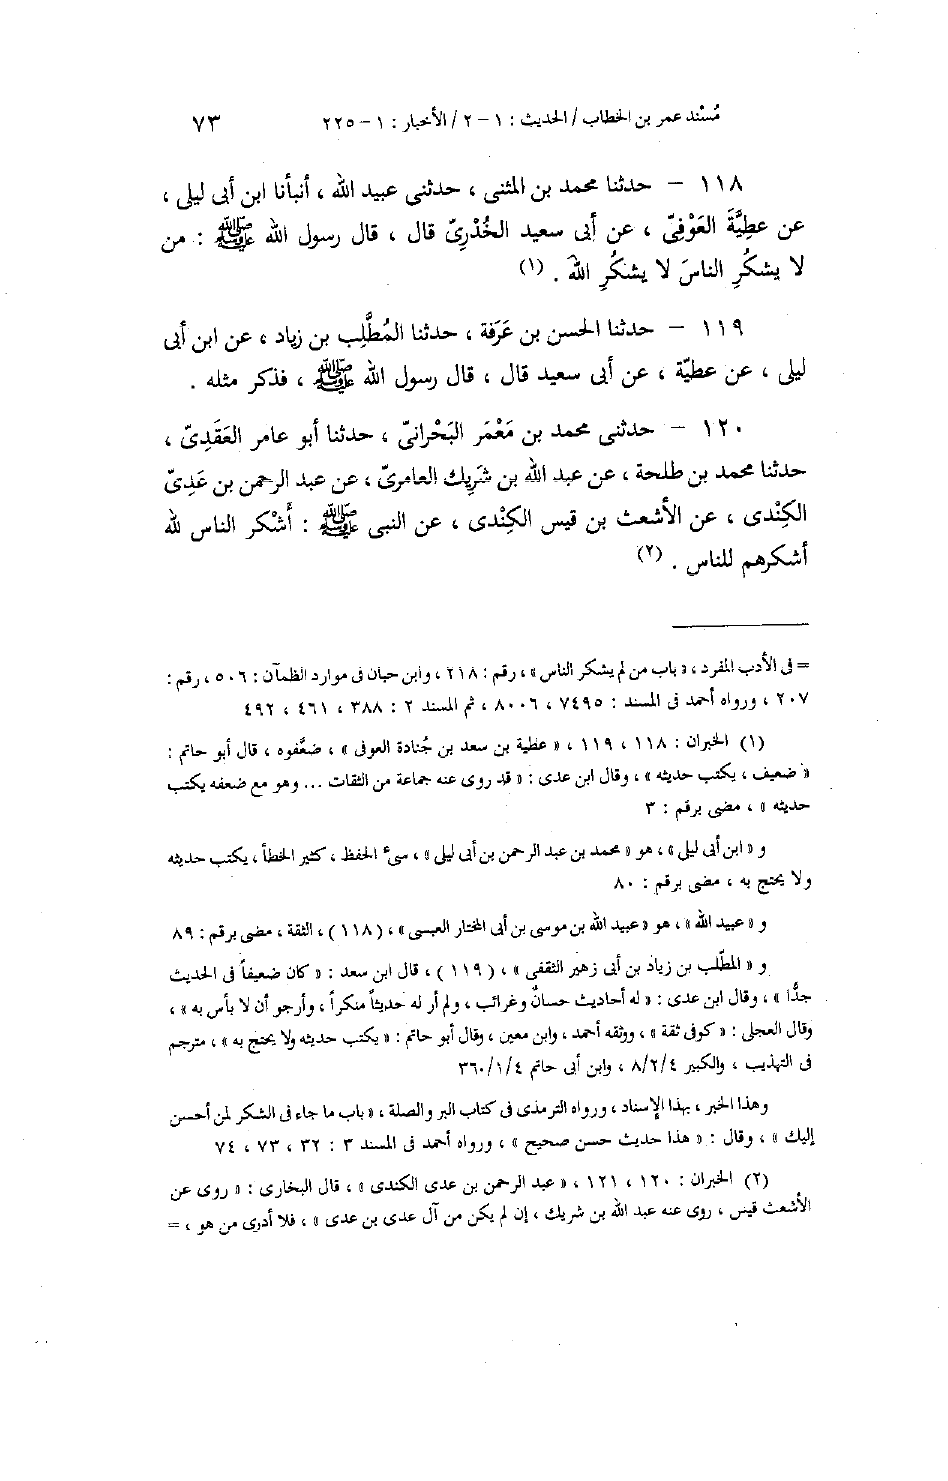 مُسْند عمر بن الخطاب / الحديث : ١ - ٢ / الأخبار : ١ - ٢٢٥ ٧٣
١١٨ – حدثنا محمد بن المثنى ، حدثنى عبيد الله ، أنبأنا ابن أبى ليلى ،
عن عطيَّة العَوْفِىّ ، عن أبى سعيد الخُدْرِىّ قال ، قال رسول الله ﷺ : من
لا يشكُرِ الناسَ لا يشكُرِ اللهَ . (١)
١١٩ – حدثنا الحسن بن عَرَفة ، حدثنا المُطَّلِب بن زياد ، عن ابن أبى
ليلى ، عن عطيّة ، عن أبى سعيد قال ، قال رسول الله ﷺ ، فذكر مثله .
١٢٠ – حدثنى محمد بن مَعْمَر البَحْرانىّ ، حدثنا أبو عامر العَقَدِىّ ،
حدثنا محمد بن طلحة ، عن عبد الله بن شَرِيك العامرىّ ، عن عبد الرحمن بن عَدِىّ
الكِنْدى ، عن الأشعث بن قيس الكِنْدى ، عن النبى ﷺ : أَشْكر الناس لله
أشكرهم للناس . (٢)
= فى الأدب المفرد ، « باب من لم يشكر الناس » ، رقم : ٢١٨ ، وابن حبان فى موارد الظمآن : ٥٠٦ ، رقم :
٢٠٧ ، ورواه أحمد فى المسند : ٧٤٩٥ ، ٨٠٠٦ ، ثم المسند ٢ : ٣٨٨ ، ٤٦١ ، ٤٩٢
(١) الخبران : ١١٨ ، ١١٩ ، « عطية بن سعد بن جُنادة العوفى » ، ضعَّفوه ، قال أبو حاتم :
« ضعيف ، يكتب حديثه » ، وقال ابن عدى : « قد روى عنه جماعة من الثقات ... وهو مع ضعفه يكتب
حديثه » ، مضى برقم : ٣
و « ابن أبى ليلى » ، هو « محمد بن عبد الرحمن بن أبى ليلى » ، سىء الحفظ ، كثير الخطأ ، يكتب حديثه
ولا يحتج به ، مضى برقم : ٨٠
و « عبيد الله » ، هو « عبيد الله بن موسى بن أبى المختار العبسى » ، (١١٨) ، الثقة ، مضى برقم : ٨٩
و « المطّلب بن زياد بن أبى زهير الثقفى » ، (١١٩) ، قال ابن سعد : « كان ضعيفاً فى الحديث
جدًّا » ، وقال ابن عدى : « له أحاديث حسانٌ وغرائب ، ولم أر له حديثاً منكراً ، وأرجو أن لا بأس به » ،
وقال العجلى : « كوفى ثقة » ، ووثقه أحمد ، وابن معين ، وقال أبو حاتم : « يكتب حديثه ولا يحتج به » ، مترجم
فى التهذيب ، والكبير ٨/٢/٤ ، وابن أبى حاتم ٣٦٠/١/٤
وهذا الخبر ، بهذا الإسناد ، ورواه الترمذى فى كتاب البر والصلة ، « باب ما جاء فى الشكر لمن أحسن
إليك » ، وقال : « هذا حديث حسن صحيح » ، ورواه أحمد فى المسند ٣ : ٣٢ ، ٧٣ ، ٧٤
(٢) الخبران : ١٢٠ ، ١٢١ ، « عبد الرحمن بن عدى الكندى » ، قال البخارى : « روى عن
الأشعث قيس ، روى عنه عبد الله بن شريك ، إن لم يكن من آل عدى بن عدى » ، فلا أدرى من هو ، =